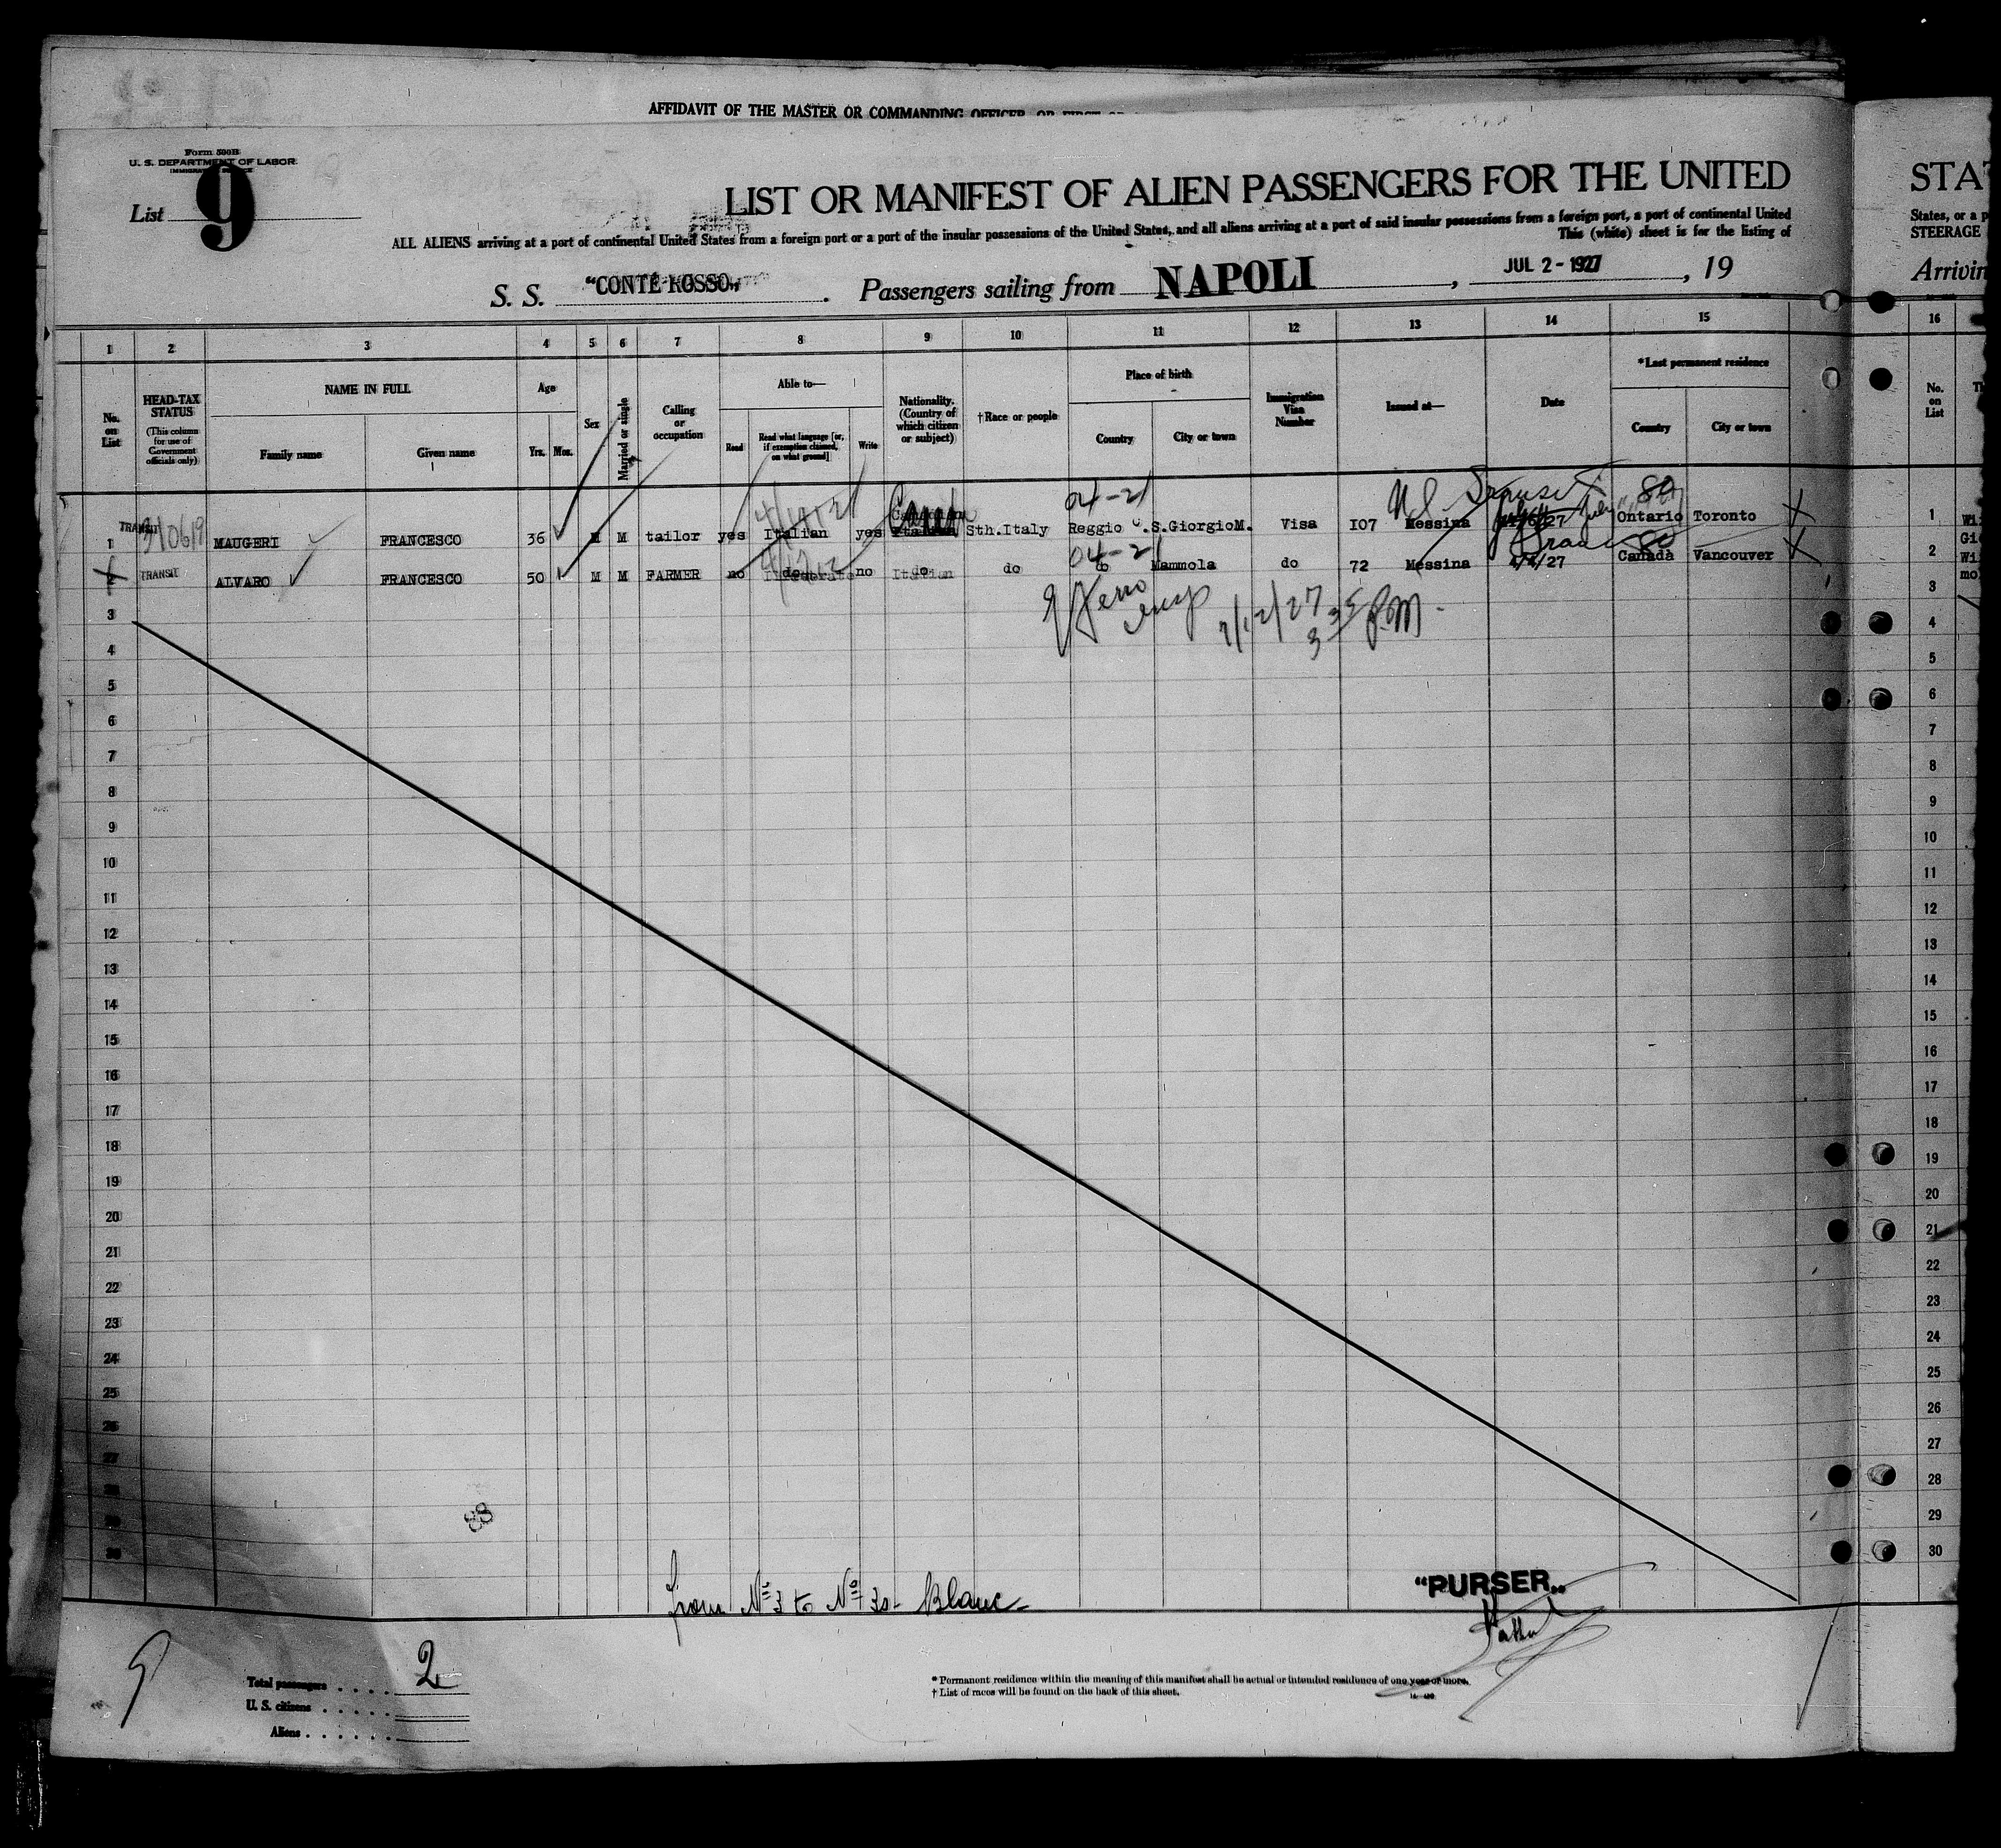 AFFIDAVIT OF THE MASTER OR COMMANDING OFFICER, OR FIRST OR
Form 500B
U. S. DEPARTMENT OF LABOR
IMMIGRATION SERVICE
List 9
LIST OR MANIFEST OF ALIEN PASSENGERS FOR THE UNITED
STA
ALL ALIENS arriving at a port of continental United States from a foreign port or a port of the insular possessions of the United States, and all aliens arriving at a port of said insular possessions from a foreign port, a port of continental United
States, or a p
This (white) sheet is for the listing of
STEERAGE
S. S. "CONTE ROSSO" . Passengers sailing from NAPOLI , JUL 2 - 1927 , 19
Arrivin
1 2 3 4 5 6 7 8 9 10 11 12 13 14 15 16
No. on List
HEAD-TAX STATUS
(This column for use of Government officials only)
NAME IN FULL
Family name
Given name
Age
Yrs.
Mos.
Sex
Married or single
Calling or occupation
Able to—
Read
Read what language [or, if exemption claimed, on what ground]
Write
Nationality. (Country of which citizen or subject)
†Race or people
Place of birth
Country
City or town
Immigration Visa Number
Issued at—
Date
*Last permanent residence
Country
City or town
No. on List
Th
04-21
1 TRANSIT MAUGERI FRANCESCO 36 M M tailor yes Italian yes Italian Sth.Italy Reggio C.S.GiorgioM. Visa 107 Messina Ontario Toronto 1
04-21
2 TRANSIT ALVARO FRANCESCO 50 M M FARMER no do no do do do Mammola do 72 Messina Canada Vancouver 2
7/12/27
3 35 P.M.
3 3
4 4
5 5
6 6
7 7
8 8
9 9
10 10
11 11
12 12
13 13
14 14
15 15
16 16
17 17
18 18
19 19
20 20
21 21
22 22
23 23
24 24
25 25
26 26
27 27
28 28
29 29
30 30
88
from Nº 3 to Nº 30 - Blanc -
"PURSER"
9
Total passengers . . . . 2
U. S. citizens . . . . .
Aliens . . . . . .
* Permanent residence within the meaning of this manifest shall be actual or intended residence of one year or more.
† List of races will be found on the back of this sheet.